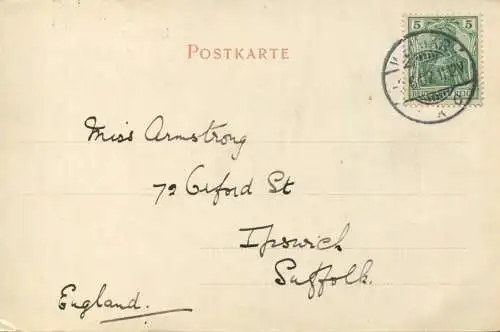 5
POSTKARTE
Miss Armstrong
72 Orford St
Ipswich
Suffolk.
England.